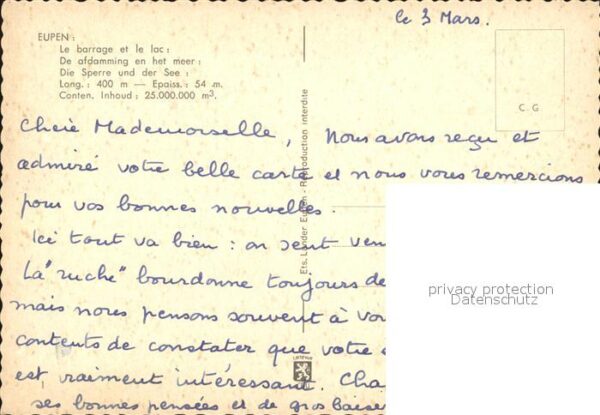 le 3 Mars.
EUPEN :
Le barrage et le lac :
De afdamming en het meer :
Die Sperre und der See :
Long. : 400 m — Epaiss. : 54 m.
Conten. Inhoud : 25.000.000 m³.
C. G
Chère Mademoiselle, Nous avons reçu et
admiré votre belle carte et nous vous remercions
pour vos bonnes nouvelles.
Ici tout va bien : on sent
La "ruche" bourdonne toujours
mais nous pensons souvent à
contents de constater que votre
est vraiment intéressant.
ses bonnes pensées et de gros
Ets. Lander Eupen - Reproduction interdite
privacy protection
Datenschutz